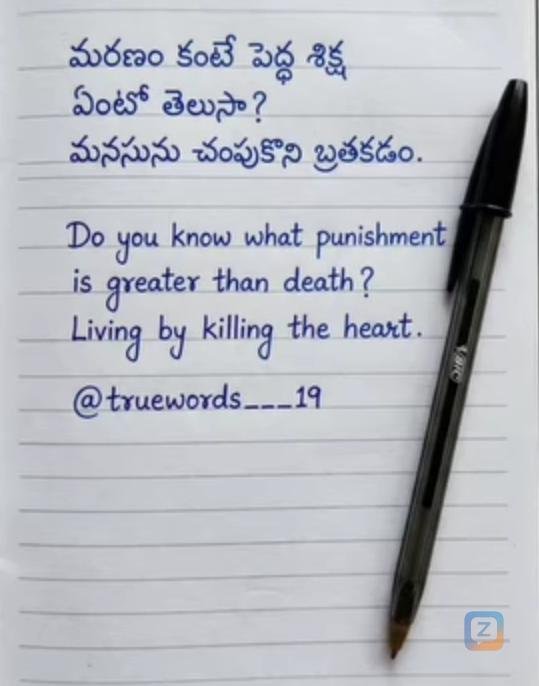 మరణం కంటే పెద్ధ శిక్ష
ఏంటో తెలుసా?
మనసును చంపుకొని బ్రతకడం.
Do you know what punishment
is greater than death?
Living by killing the heart.
@truewords___19
BIC
Z